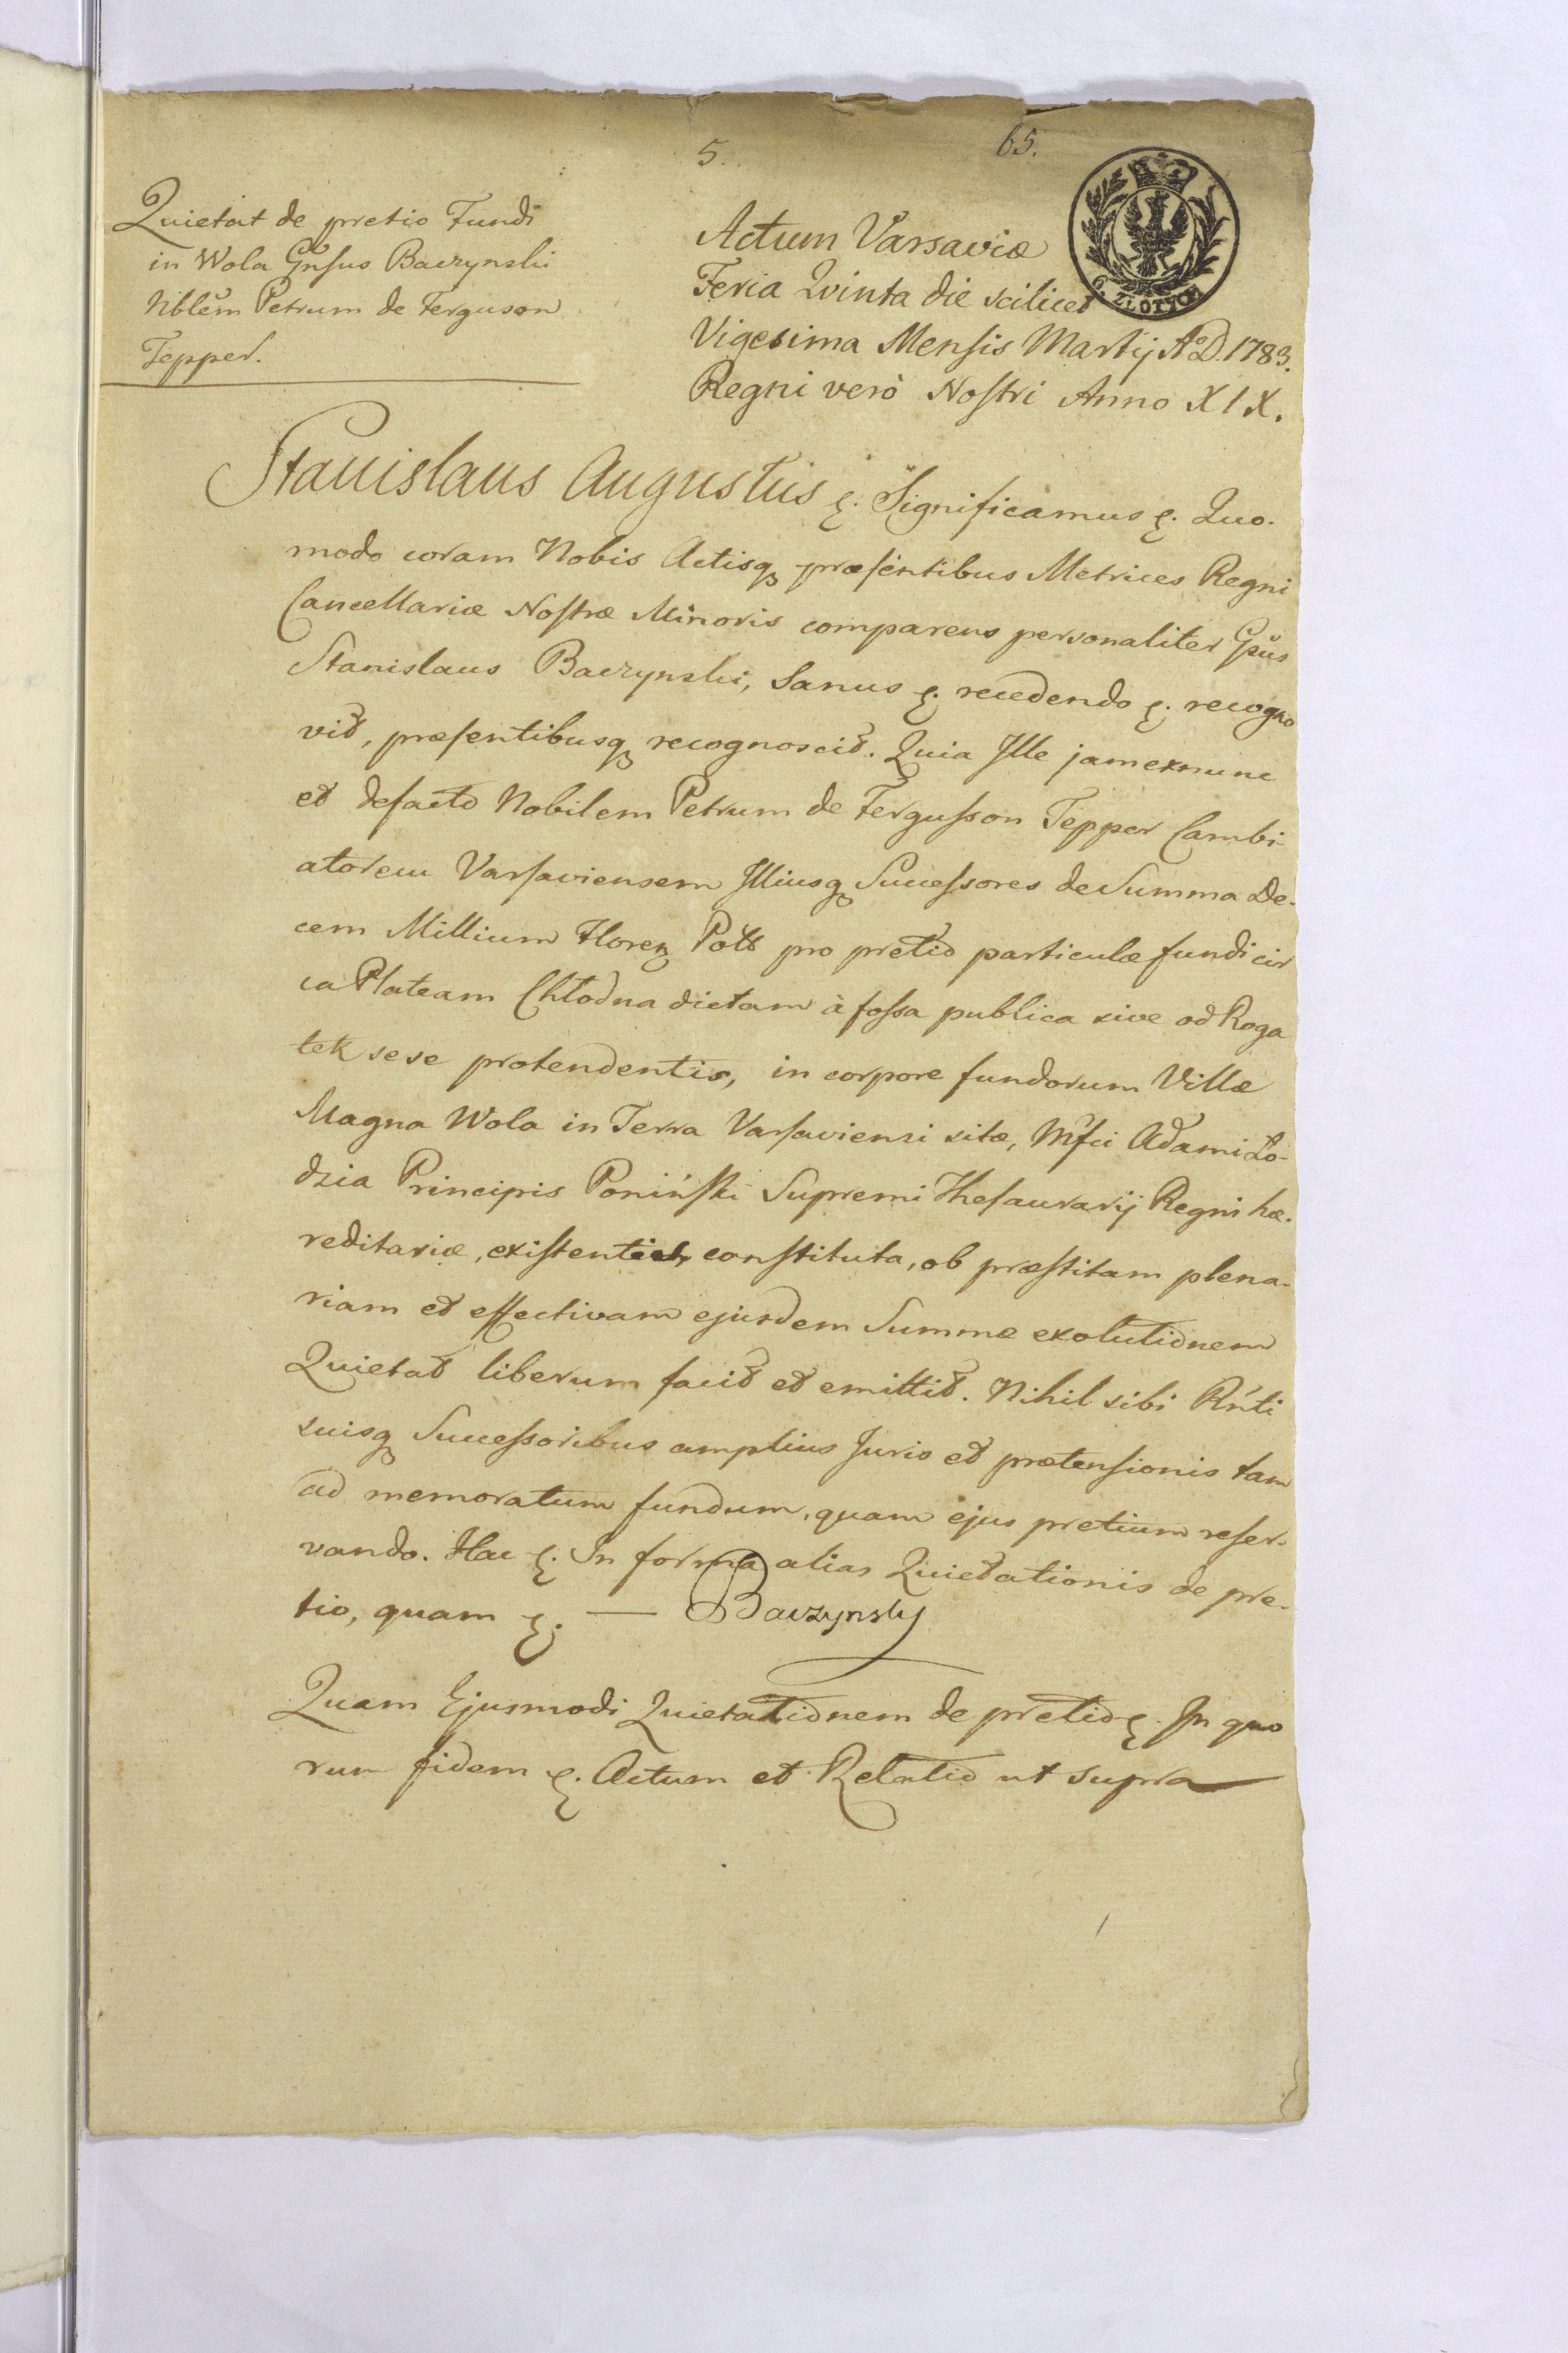 5.
65.
Quietat de pretio Fundi
in Wola Gnsus Baczynski
Nblem Petrum de Ferguson
Tepper.
6. ZŁOTYCH
Actum Varsaviæ
Feria Qvinta die scilicet
Vigesima Mensis Martij A͞o D. 1783.
Regni verò Nostri Anno XIX.
Stanislaus Augustus &. Significamus &. Quo-
modo coram Nobis Actisq præsentibus Metrices Regni
Cancellariæ Nostræ Minoris comparens personaliter Gsus
Stanislaus Baczynski, Sanus &. recedendo &. recogno
vit, præsentibusq recognoscit. Quia Ille jamexnunc
et defacto Nobilem Petrum de Fergusson Tepper Cambi-
atorem Varsaviensem Illiusq Successores de Summa De-
cem Millium Floren Poll pro pretio particulæ fundi cir
ca Plateam Chłodna dictam à fossa publica sive od Roga
tek sese protendentis, in corpore fundorum Villæ
Magna Wola in Terra Varsaviensi sitæ, Mfci Adami Ło-
dzia Principis Poniński Supremi Thesaurarij Regni hæ-
reditariæ, existentis, constituta, ob præstitam plena-
riam et effectivam ejusdem Summæ exolutionem
Quietat liberum facit et emittit. Nihil sibi Rnti
suisq Successoribus amplius Juris et prætensionis tam
ad memoratum fundum, quam ejus pretium reser-
vando. Hac &. In forma alias Quietationis de pre-
tio, quam &. — Baczynsky
Quam Ejusmodi Quietationem de pretio &. In quo
rum fidem &. Actum et Relatio ut supra